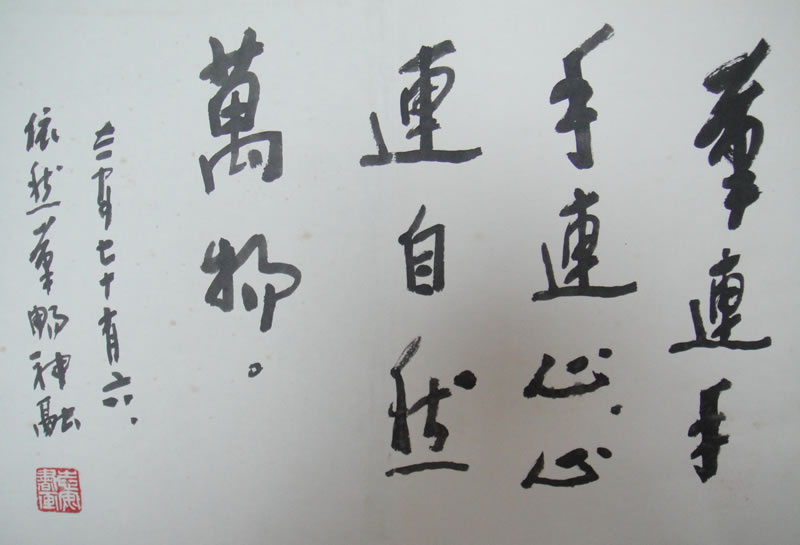 筆連手
手連心、心
連自然
萬物。
七十有六.
依然筆暢神融